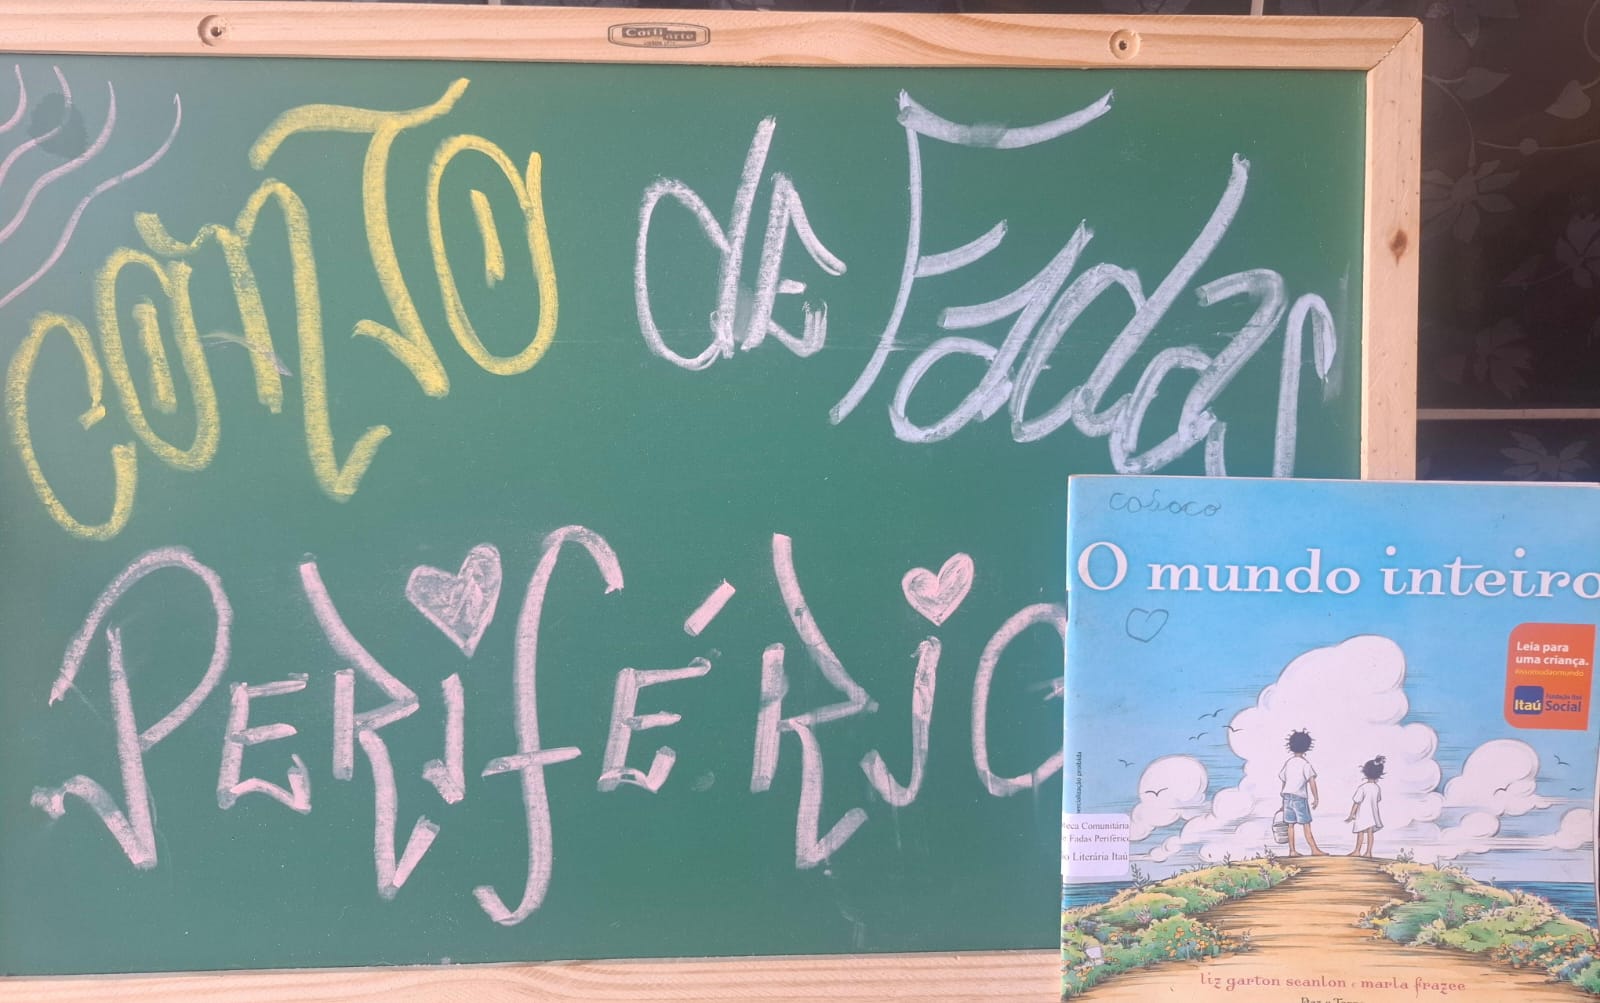 Corti arte
CONTO de Fadas
PERIFÉRIO
COSOCO
O mundo inteiro
Leia para
uma criança.
#issomudaomundo
Itaú
Fundação Itaú
Social
ercialização proibida
teca Comunitária
e Fadas Periférico
o Literária Itaú
liz garton scanlon e marla frazee
Paz e Terra